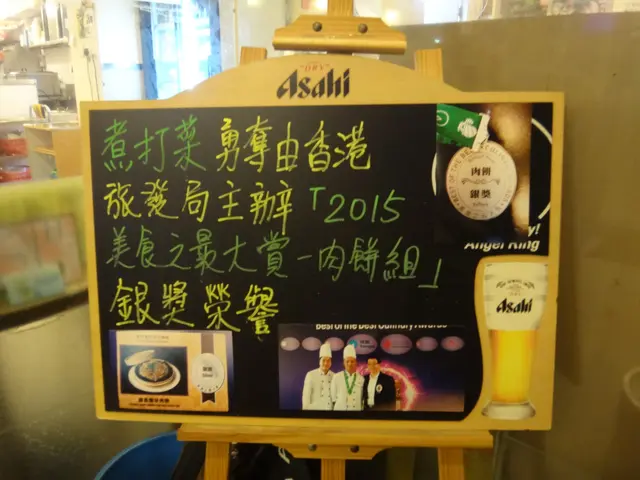 "DRY"
Asahi
煮打菜 勇奪由香港
旅發局主辦「2015
美食之最大賞－肉餅組」
銀獎榮譽
肉餅
銀獎
Anger Ring
Best of the Best Culinary Awards
Asahi